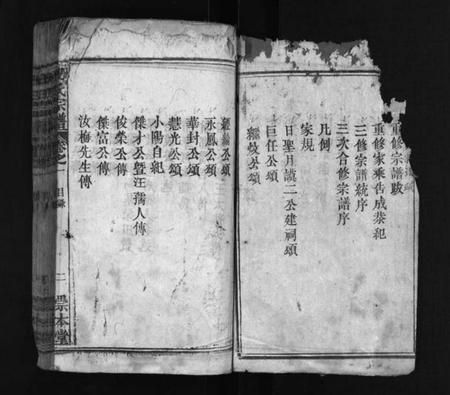 重修宗譜跋
重修家乘告成恭紀
三修宗譜統序
三次合修宗譜序
凡例
家規
日聖月識二公建祠頌
巨任公頌
經歧公頌
經公頌
永鳳公頌
華封公頌
慧光公頌
小陽自紀
傑才公暨汪孺人傳
俊榮公傳
傑富公傳
汝梅先生傳
氏宗譜 卷之一 目錄 二 崇本堂